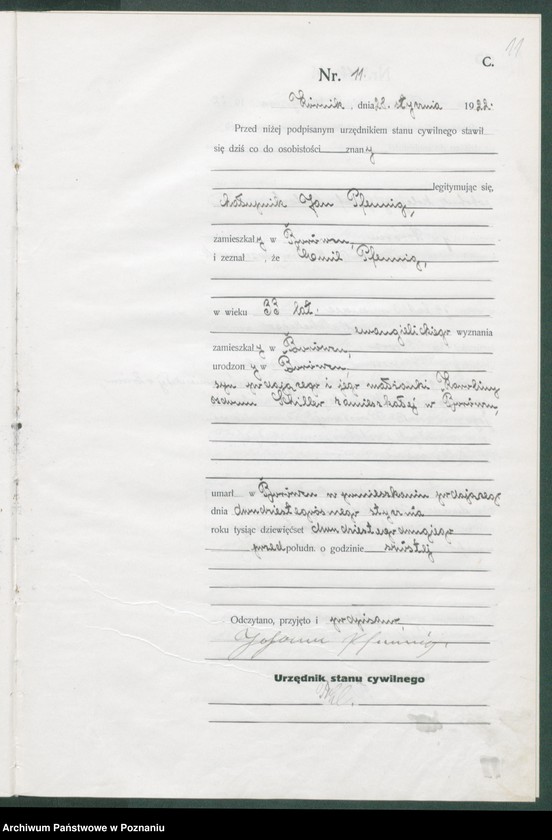 11
C.
Nr. 11.
Kórnik, dnia 28. stycznia 1922.
Przed niżej podpisanym urzędnikiem stanu cywilnego stawił
się dziś co do osobistości znany
legitymując się,
chałupnik Jan Pfennig,
zamieszkały w
i zeznał, że Pfennig,
w wieku 33 lat.
ewangielickiego wyznania
zamieszkały w
urodzony w
syn podającego i jego małżonki Karoliny
Schiller zamieszkałej w
umarł w w pomieszkaniu podającego
dnia dwudziestegoósmego stycznia
roku tysiąc dziewięćset dwudziestegodrugiego
przed połudn. o godzinie szóstej
Odczytano, przyjęto i podpisano,
Johann Pfennig.
Urzędnik stanu cywilnego
Archiwum Państwowe w Poznaniu